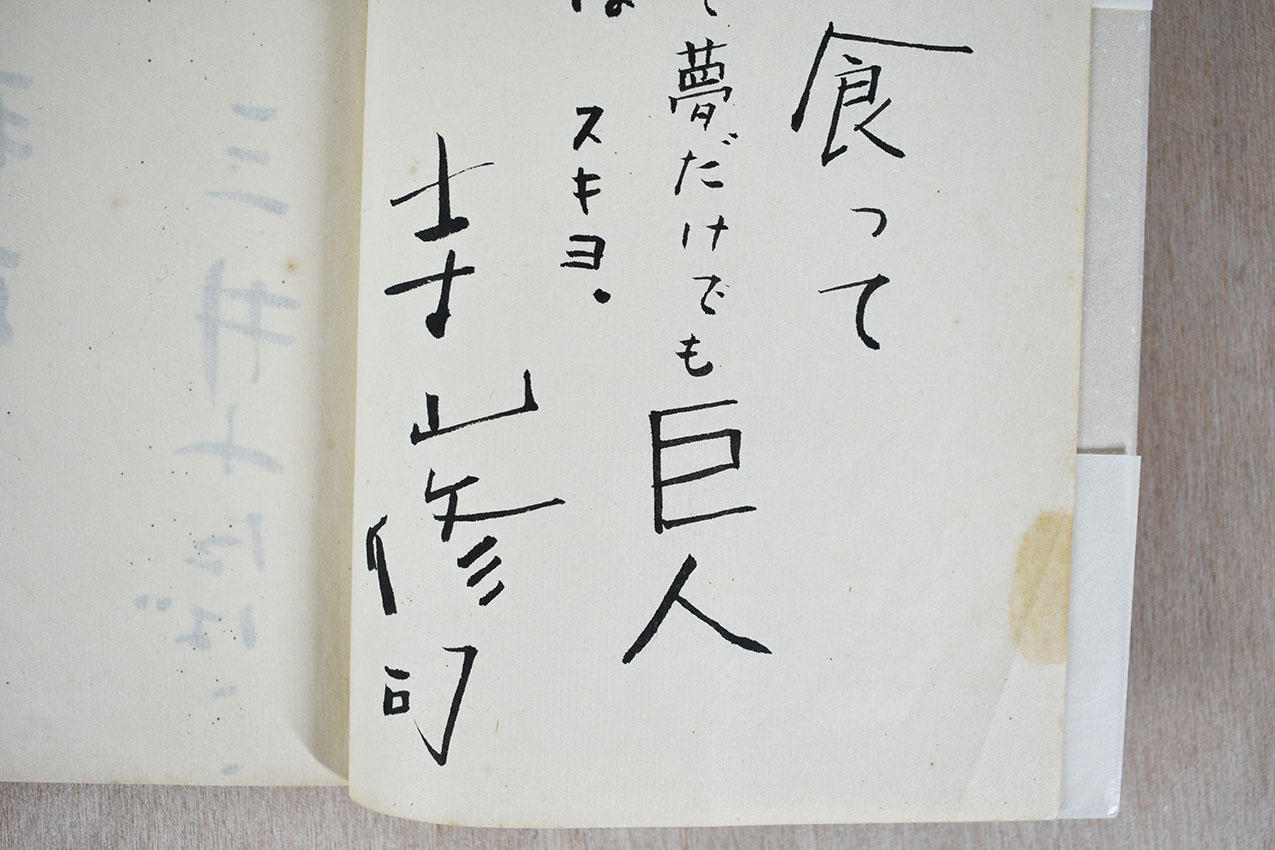 食って
て夢だけでも巨人
は スキヨ.
寺山修司